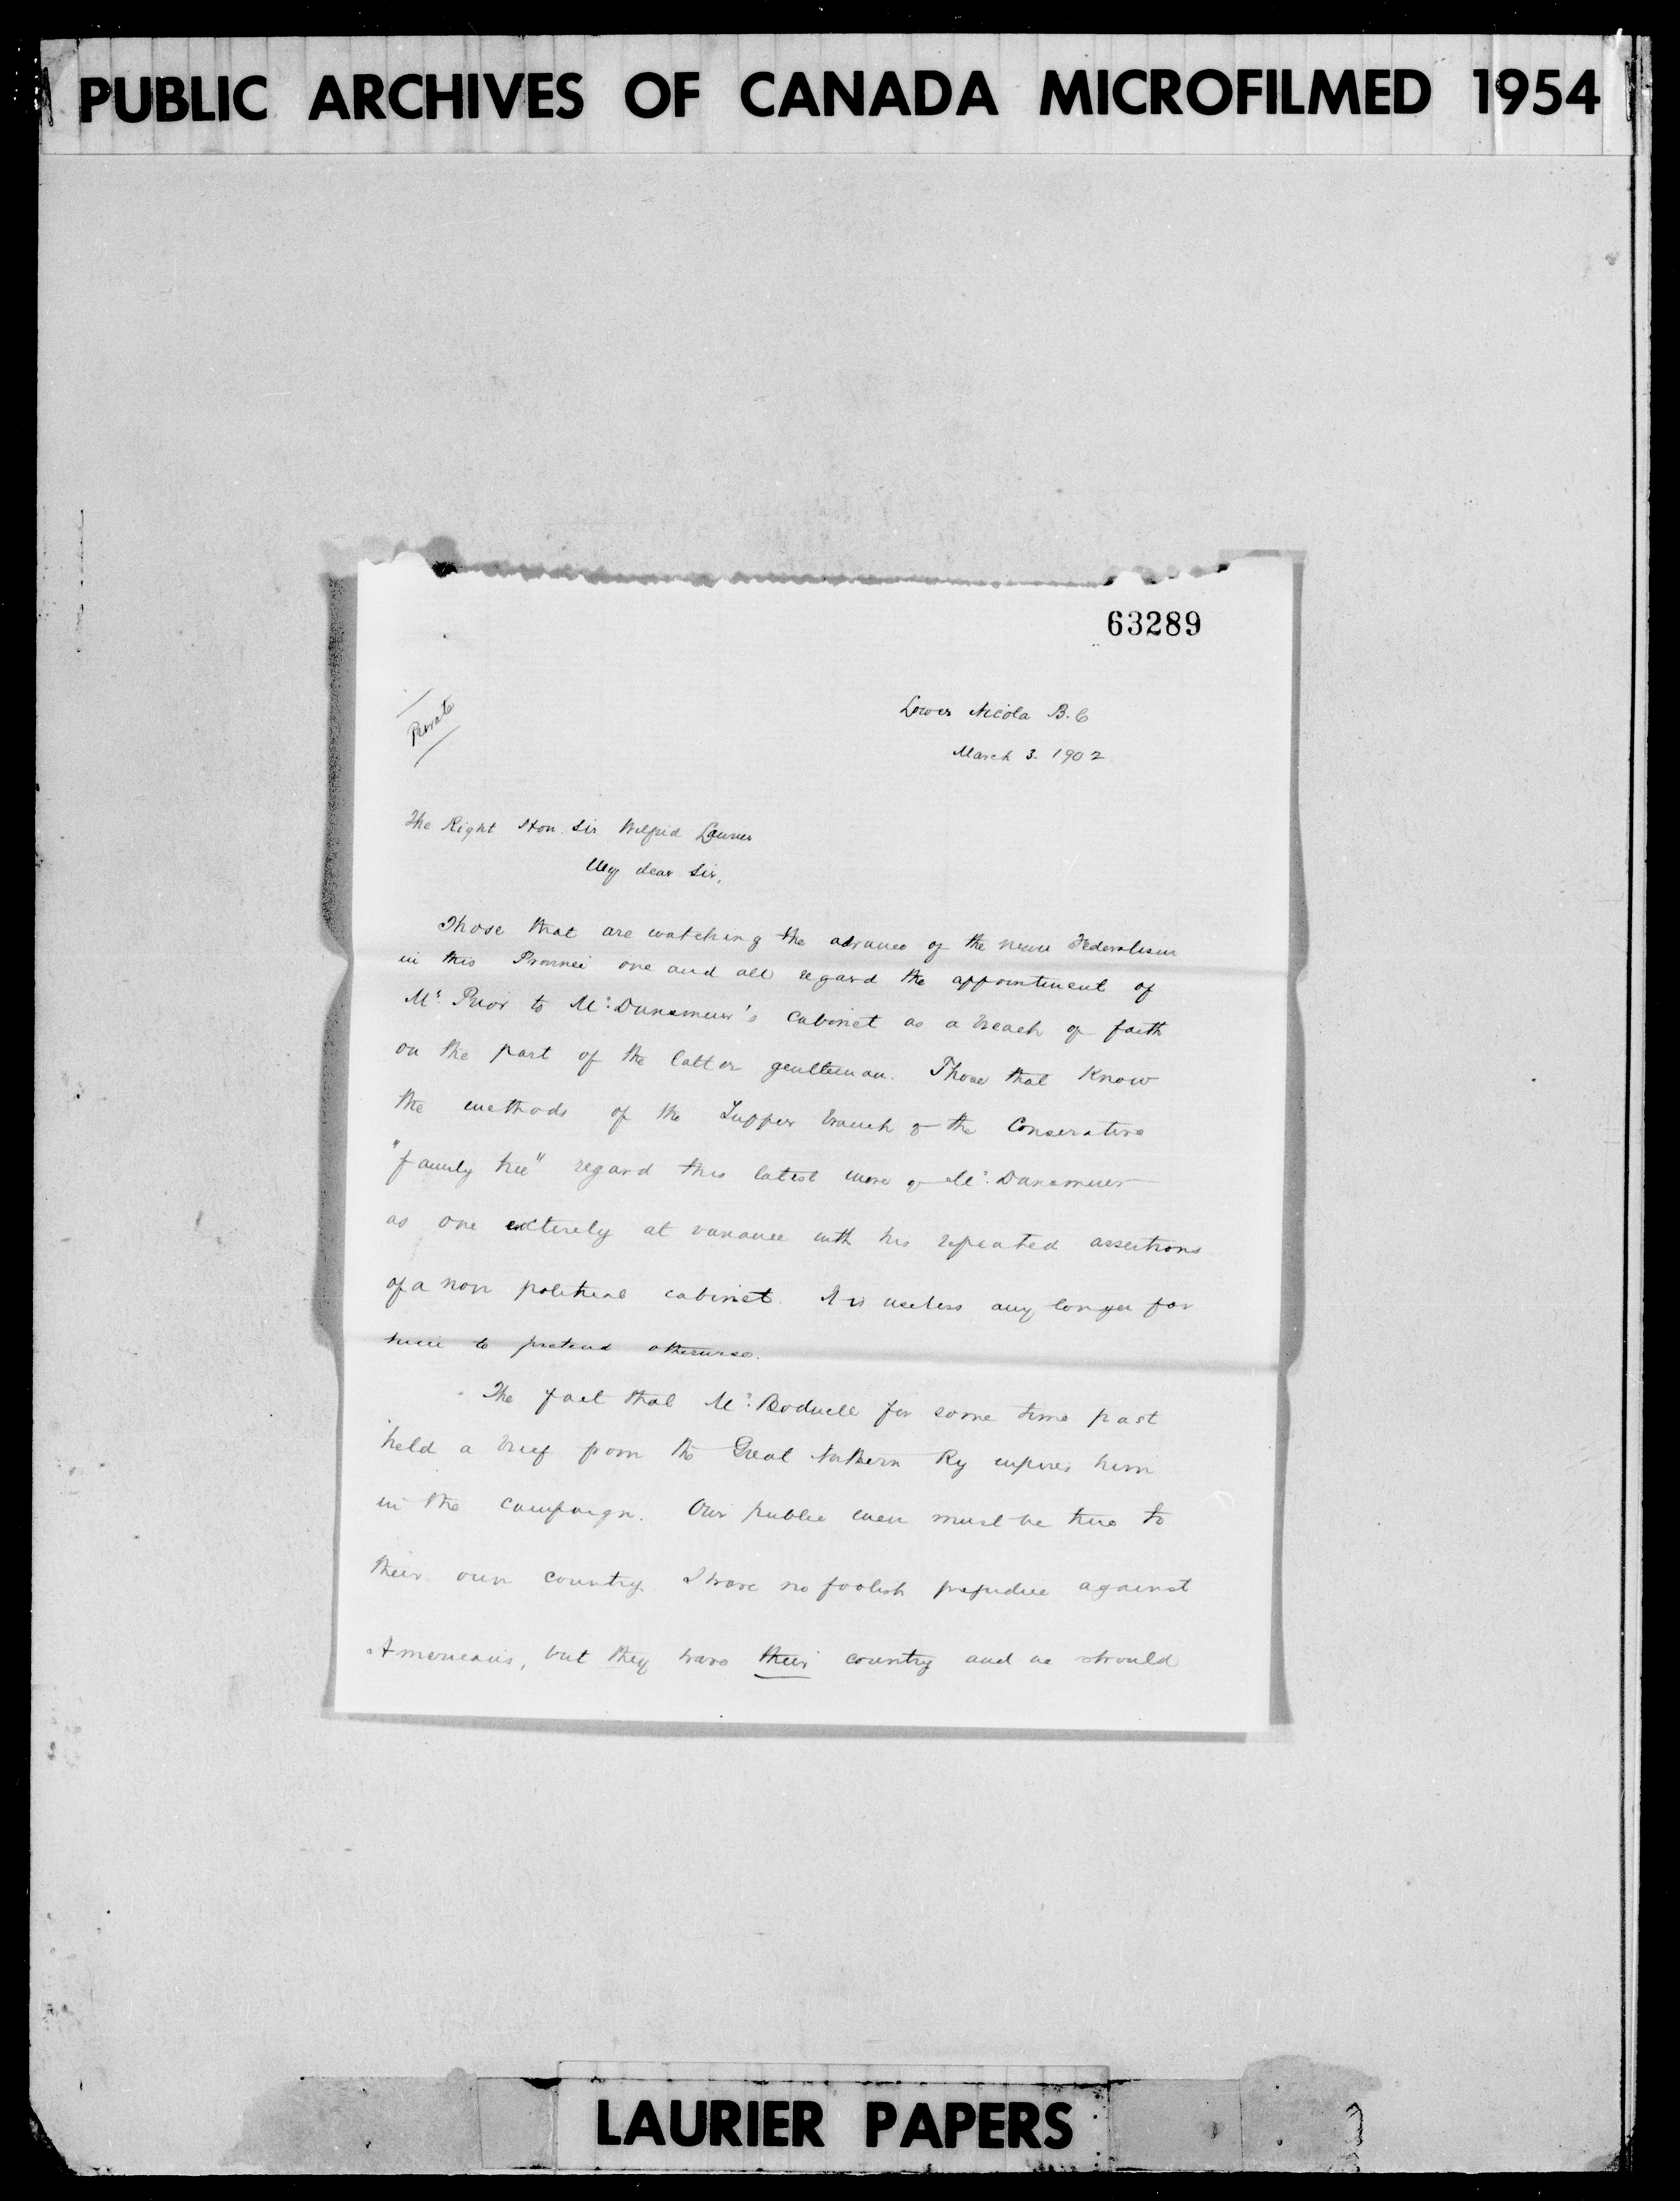 PUBLIC ARCHIVES OF CANADA MICROFILMED 1954
63289
Private
Lower Nicola B.C
March 3. 1902
The Right Hon. Sir Wilfrid Laurier
My dear Sir,
Those that are watching the advance of the new Federalism
in this Province one and all regard the appointment of
Mr. Prior to Mr. Dunsmuir's cabinet as a breach of faith
on the part of the latter gentleman. Those that know
the methods of the Tupper branch of the Conservative
"family tree" regard this latest move of Mr. Dunsmuir
as one entirely at variance with his repeated assertions
of a non political cabinet. It is useless any longer for
him to pretend otherwise.
The fact that Mr. Bodwell for some time past
held a brief from the Great Northern Ry injures him
in the campaign. Our public men must be true to
their own country. I have no foolish prejudice against
Americans, but they have their country and we should
LAURIER PAPERS